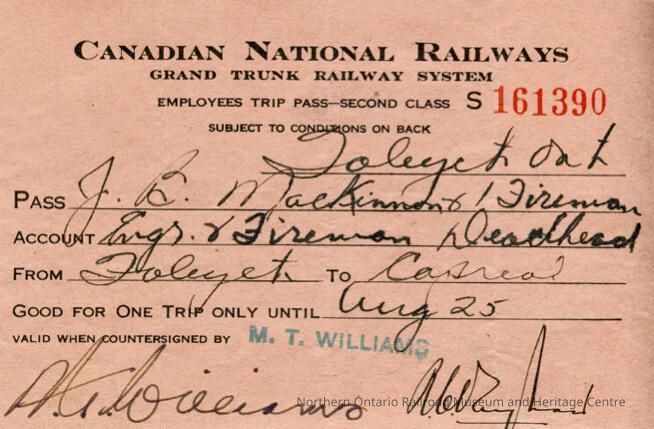 CANADIAN NATIONAL RAILWAYS
GRAND TRUNK RAILWAY SYSTEM
EMPLOYEES TRIP PASS—SECOND CLASS S 161390
SUBJECT TO CONDITIONS ON BACK
Foleyet Ont
PASS J. B. MacKinnon & 1 Fireman
ACCOUNT Engr. & Fireman Deadhead
FROM Foleyet TO Capreol
GOOD FOR ONE TRIP ONLY UNTIL Aug 25
VALID WHEN COUNTERSIGNED BY M. T. WILLIAMS
Williams
Northern Ontario Railroad Museum and Heritage Centre